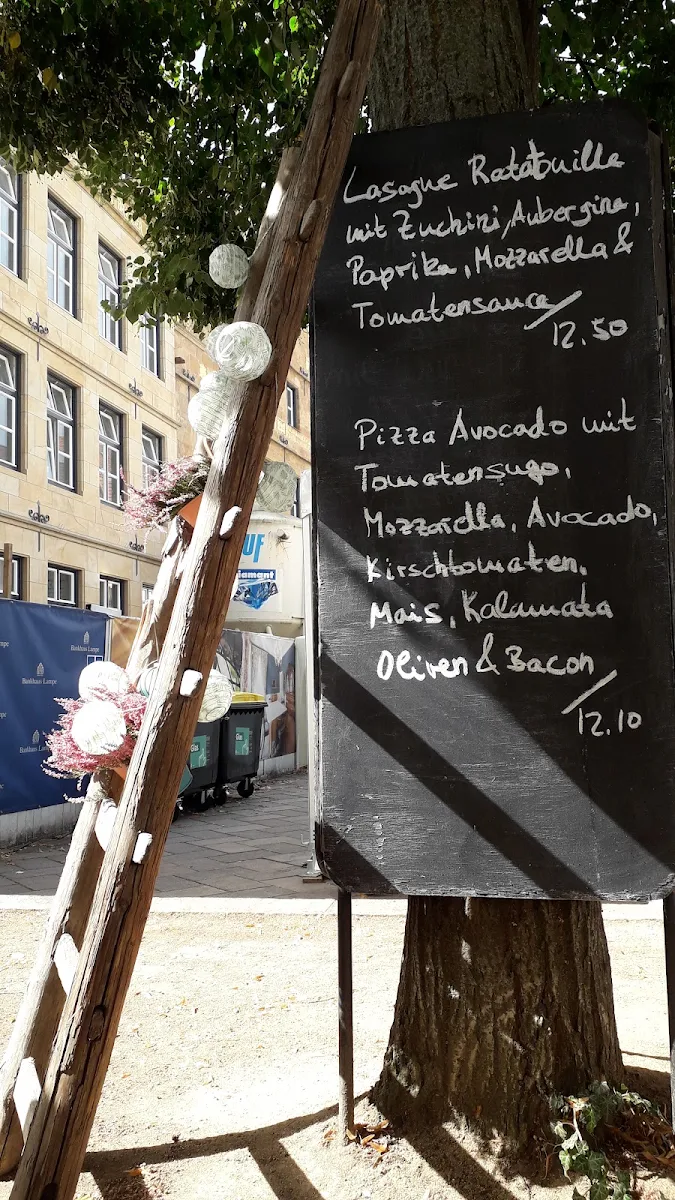 Lasagne Ratatouille
mit Zuchini, Aubergine,
Paprika, Mozzarella &
Tomatensauce
12.50
Pizza Avocado mit
Tomatensugo,
Mozzarella, Avocado,
Kirschtomaten,
Mais, Kalamata
Oliven & Bacon
12.10
UF
iamant
Bankhaus Lampe
Bankhaus Lampe
Bankhaus Lampe
Glas